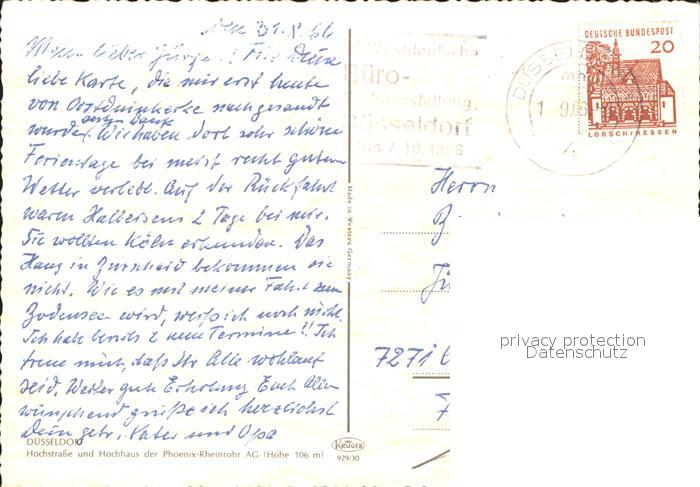 den 31.8.66
Mein lieber Jürgen! Für Deine
liebe Karte, die mir erst heute
von Oostduinkerke nachgesandt
wurde, besten Dank. Wir haben dort sehr schöne
Ferientage bei meist recht gutem
Wetter verlebt. Auf der Rückfahrt
waren Halbeisens 2 Tage bei mir.
Sie wollten Köln erkunden. Das
Haus in Burscheid bekommen sie
nicht. Wie es mit meiner Fahrt zum
Bodensee wird, weiß ich noch nicht.
Ich habe bereits 2 neue Termine!! Ich
freue mich, daß Ihr Alle wohlauf
seid. Weiter gute Erholung Euch Allen
wünschend grüße ich herzlichst
Dein Vater und Opa
DÜSSELDORF
Hochstraße und Hochhaus der Phoenix-Rheinrohr AG (Höhe 106 m)
Made in Western Germany
KRÜGER
929/30
Westdeutsche
Büro-
ausstellung
Düsseldorf
BIS 7.10.1966
DÜSSEL
DEUTSCHE BUNDESPOST
20
LORSCH/HESSEN
Herrn
7271
privacy protection
Datenschutz